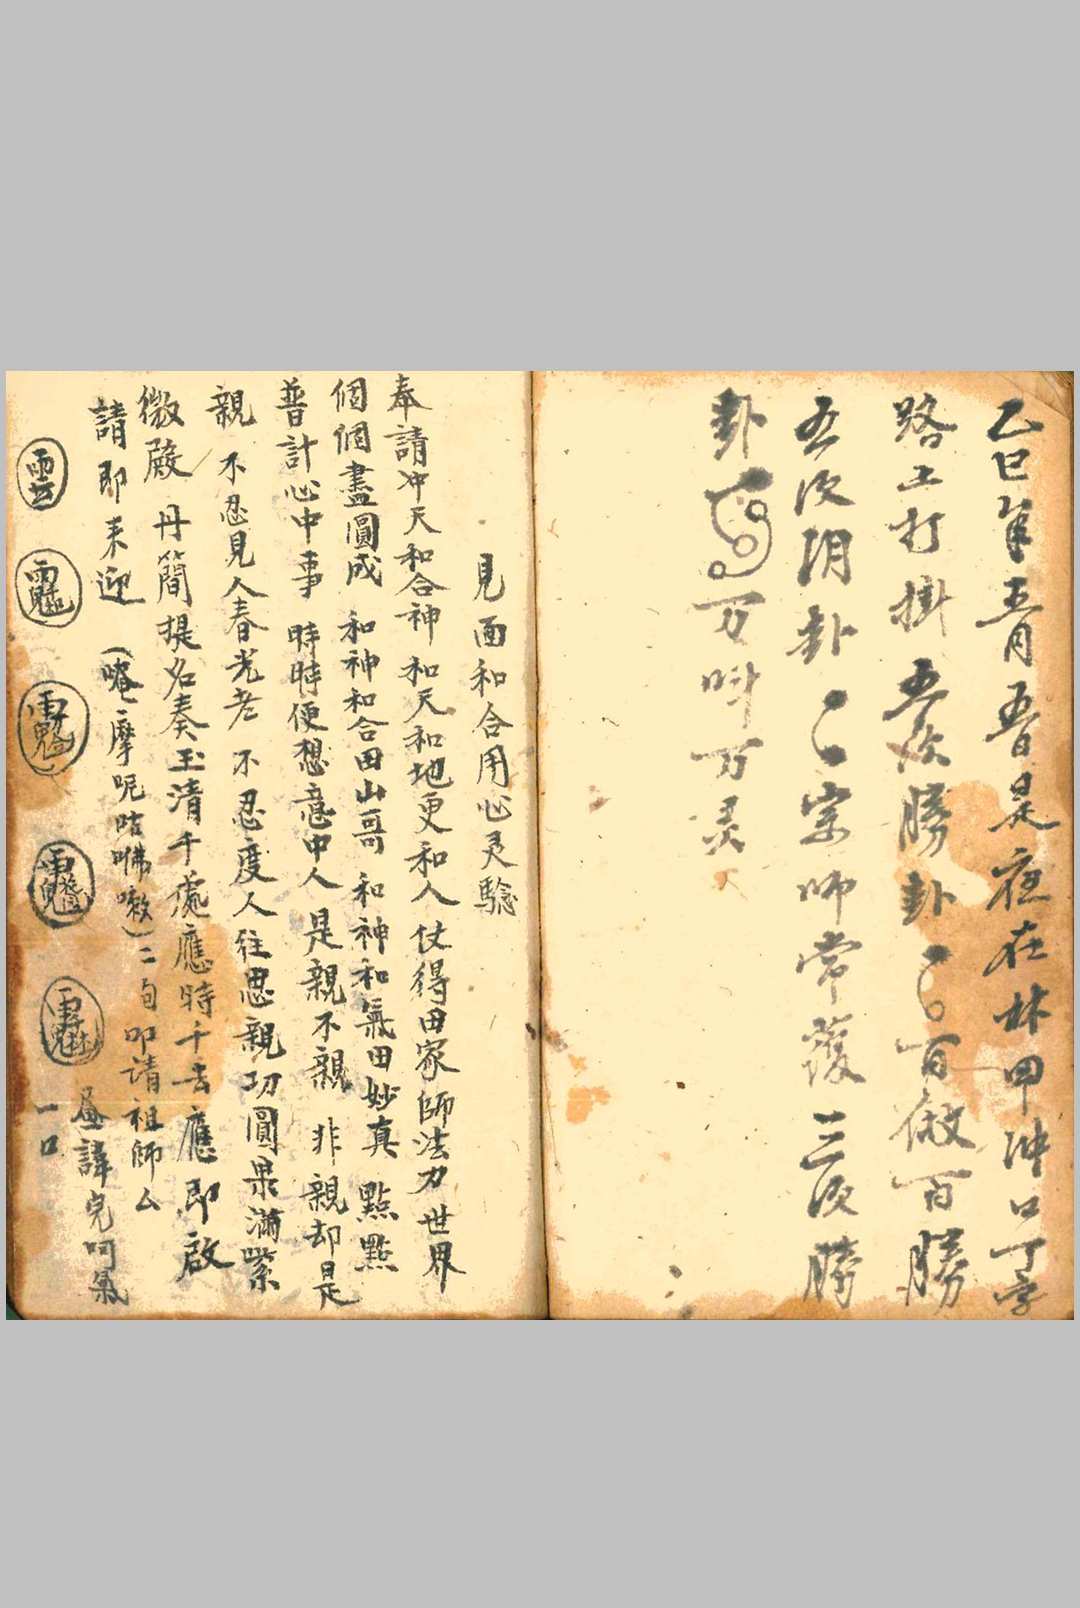 乙巳年五月五日是夜在林甲冲口丁字
路上打掛 五次勝卦 百做百勝
五次阴卦 宗师常護 三次勝
卦 万呌万灵
見面和合用心灵驗
奉請冲天和合神 和天和地更和人 仗得田家師法力 世界
個個盡圓成 和神和合田山哥 和神和氣田妙真 點點
普計心中事 時時便想意中人 是親不親 非親却是
親 不忍見人春光老 不忍度人往思親 功圓果滿紫
微殿 丹簡提名奏玉清 千處應時千去應 即啟
請即来迎 (唵 摩呢咭咈嗷)二句叩請祖師厶
諱 完呵氣
一口